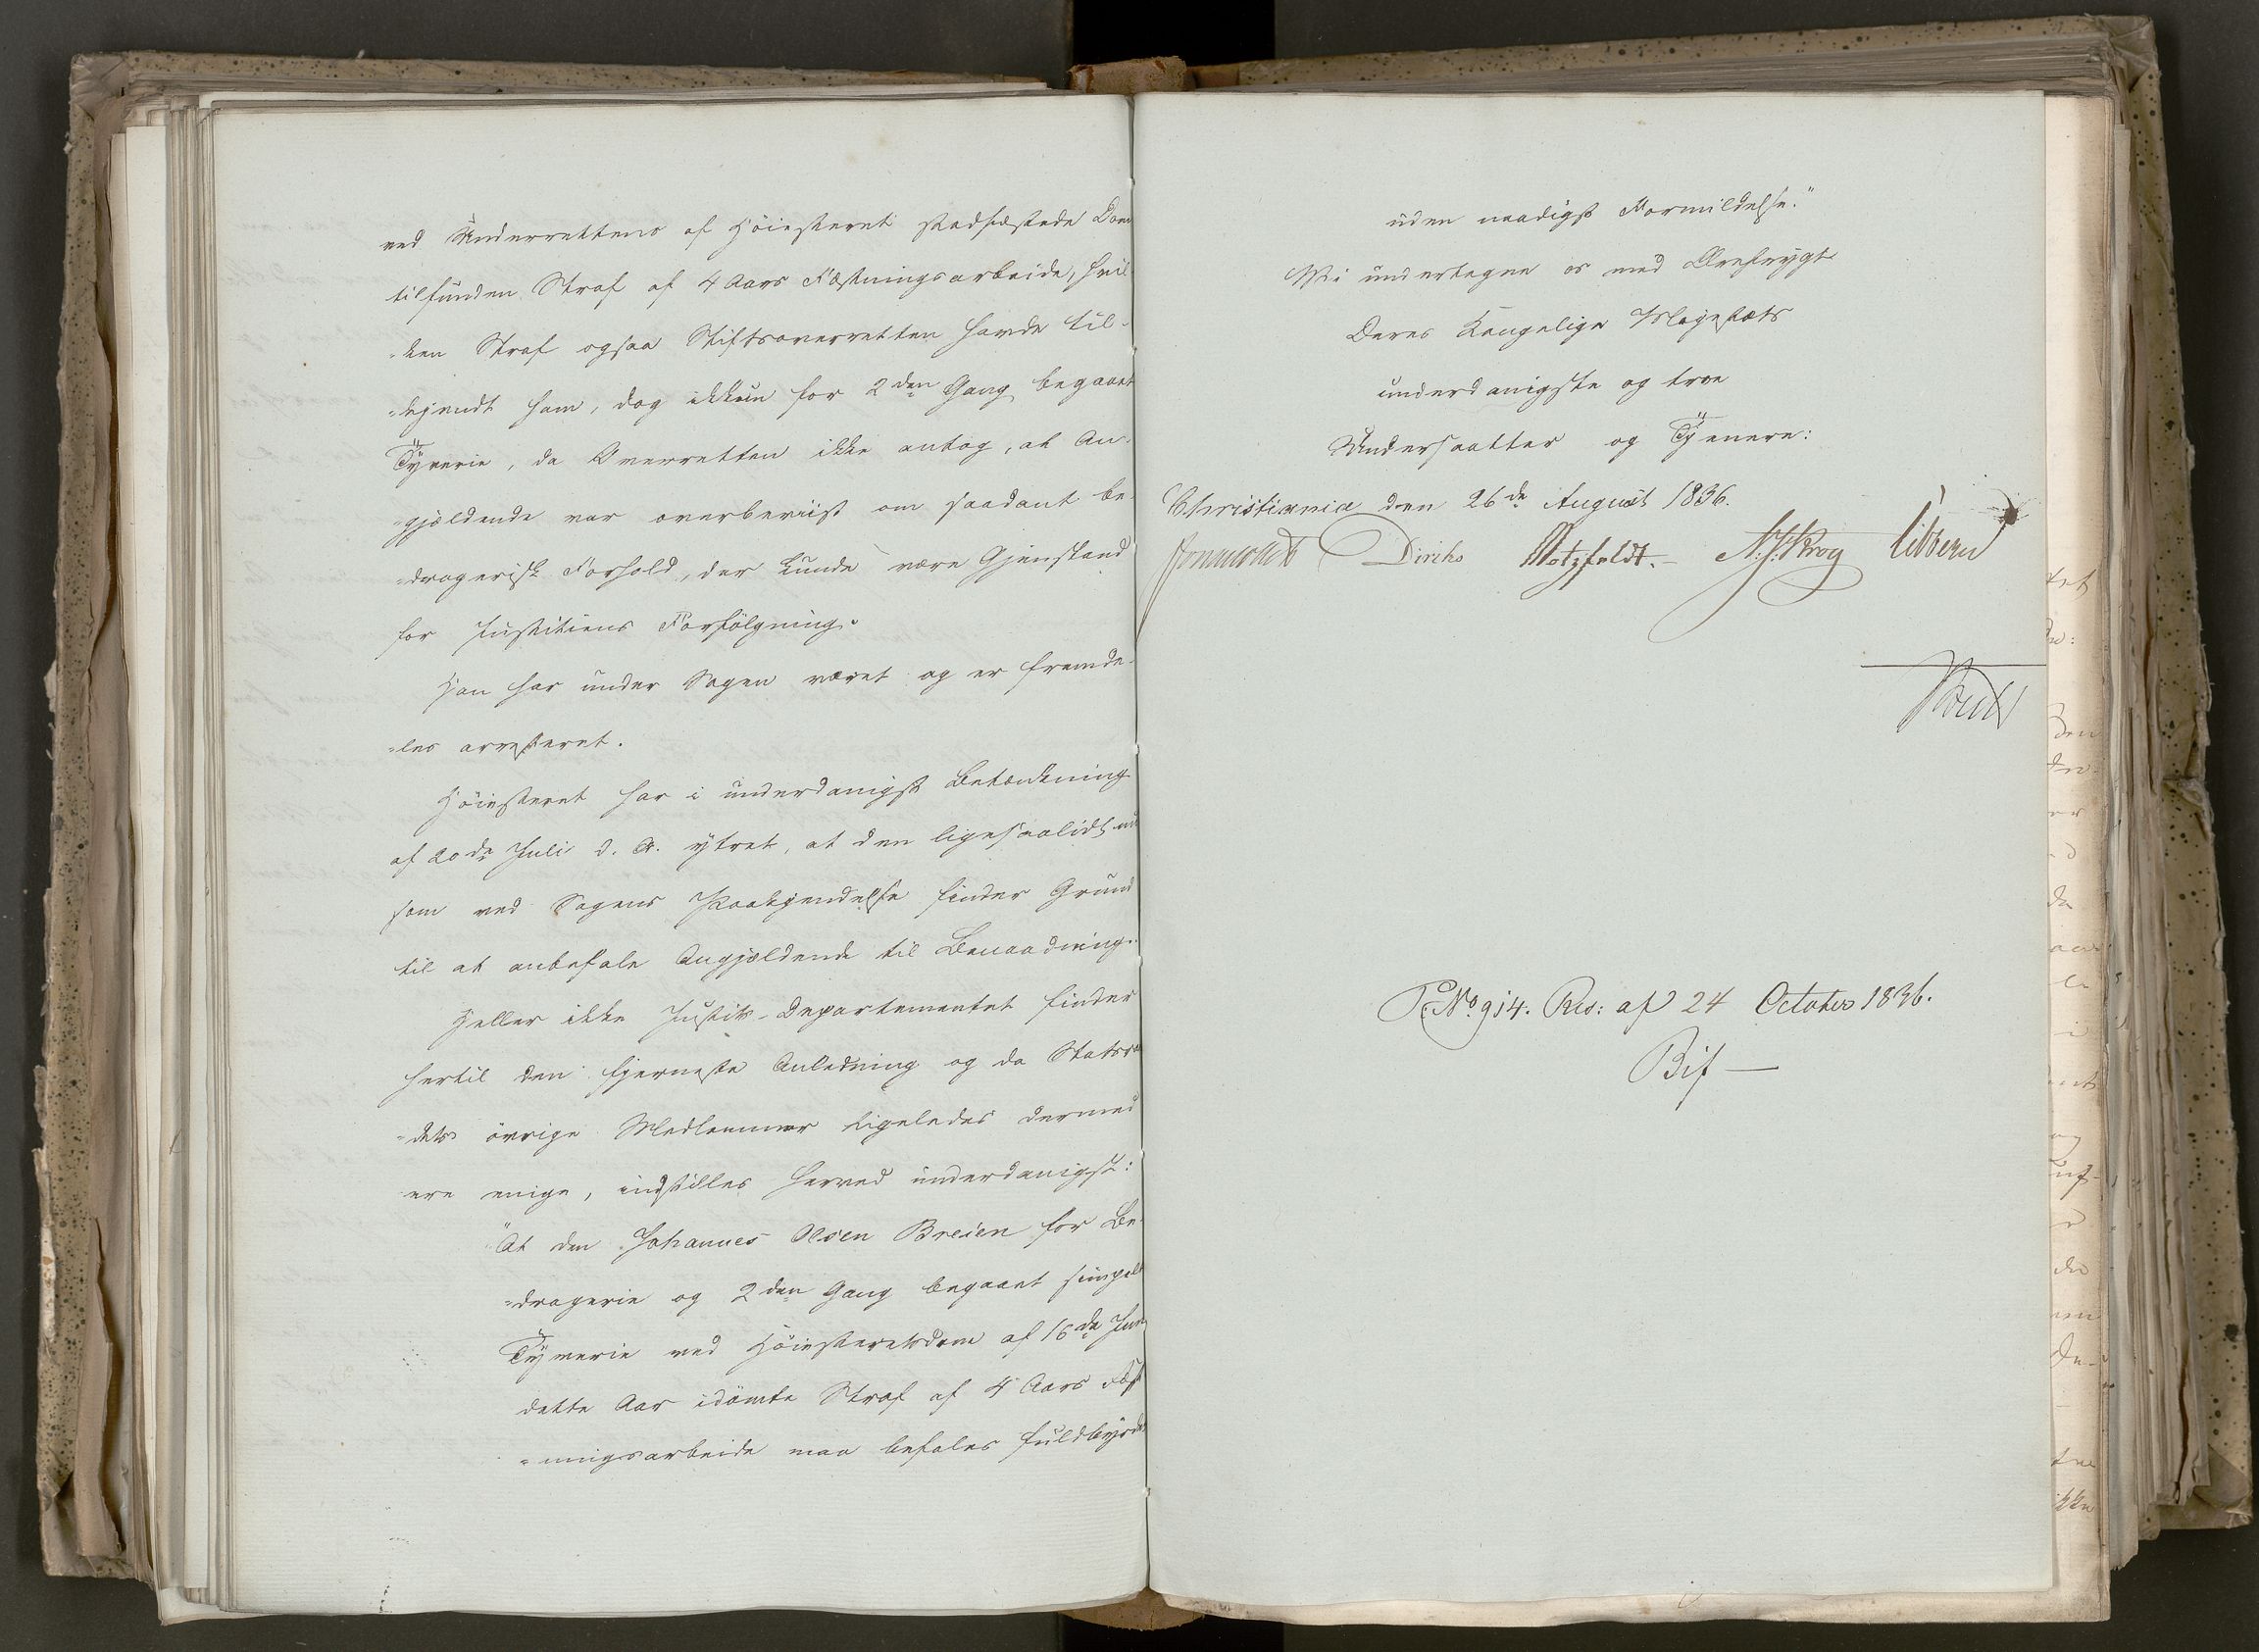 ved Underrettens af Höiesteret stadfæstede Dom
tilfunden Straf af 4 Aars Fæstningsarbeide, hvil-
"ken Straf ogsaa Stiftsoverretten havde til-
"kjendt ham, dog ikkun for 2den Gang begaaet
Tyverie, da Overretten ikke antog, at An-
"gjældende var overbeviist om saadant be-
"dragerisk Forhold, der kunde være Gjenstand
for Justitiens Forfölgning.
Han har under Sagen været og er fremde-
"les arresteret.
Höiesteret har i underdanigst Betænkning
af 20de Juli d. A. ytret, at den ligesaalidt nu
som ved Sagens Paakjendelse finder Grund
til at anbefale Angjældende til Benaadning.
Heller ikke Justits-Departementet finder
hertil den fjerneste Anledning og da Statsraa-
"dets övrige Medlemmer ligeledes dermed
ere enige, indstilles herved underdanigst:
"At den Johannes Olsen Breien for Be-
"dragerie og 2den Gang begaaet simpelt
Tyverie ved Höiesteretsdom af 16de Juni
dette Aar idömte Straf af 4 Aars Fæst-
"ningsarbeide maa befales fuldbyrdet
uden naadigst Formildelse."
Vi undertegne os med Ærefrygt
Deres Kongelige Majestæts
underdanigste og troe
Undersaatter og Tjenere:
Christiania den 26de August 1836.
Diriks Motzfeldt. N. J. Krog Vibe
P. No 914. Res: af 24 October 1836.
Bif—